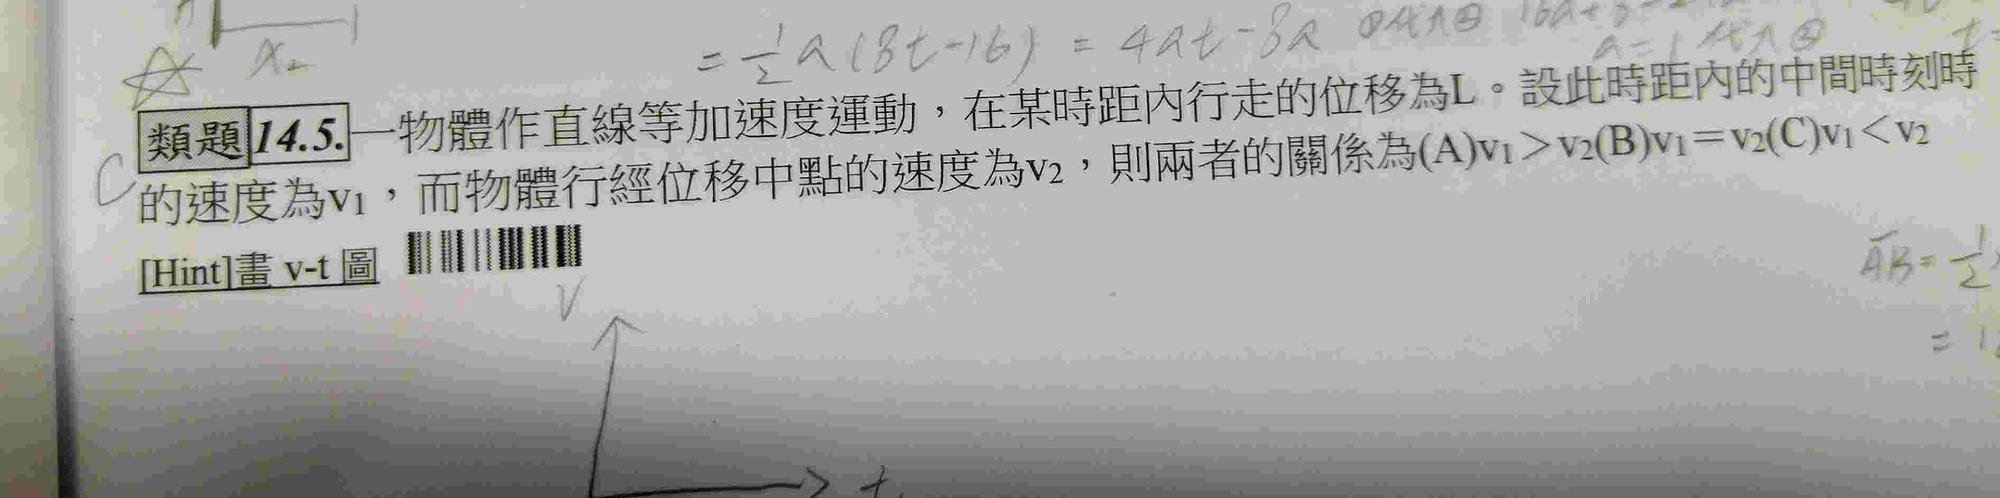 x₂
= 1/2 a(8t-16) = 4at-8a
類題 14.5. 一物體作直線等加速度運動，在某時距內行走的位移為L。設此時距內的中間時刻時
C 的速度為v₁，而物體行經位移中點的速度為v₂，則兩者的關係為(A)v₁＞v₂(B)v₁＝v₂(C)v₁＜v₂
[Hint]畫 v-t 圖
AB = 1/2
V
t